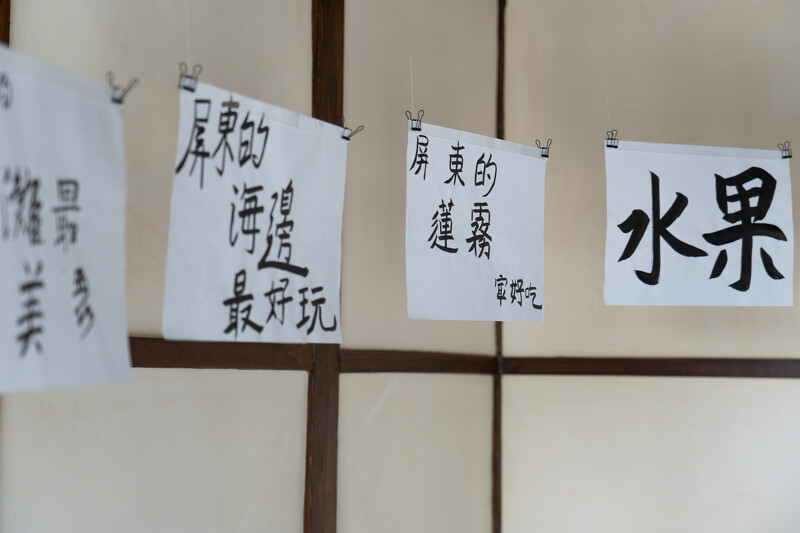 灘最
美
屏東的
海邊
最好玩
屏東的
蓮霧
㝡好吃
水果